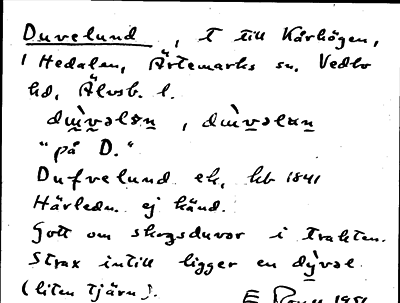 Duvelund, T till Kårhögen,
i Hedalen, Ärtemarks sn. Vedbo
hd, Älvsb. l.
"på D."
Dufvelund ek, hb 1841
Härledn. ej känd.
Gott om skogsduvor i trakten.
Strax intill ligger en dy̆vəl
(liten tjärn).
E